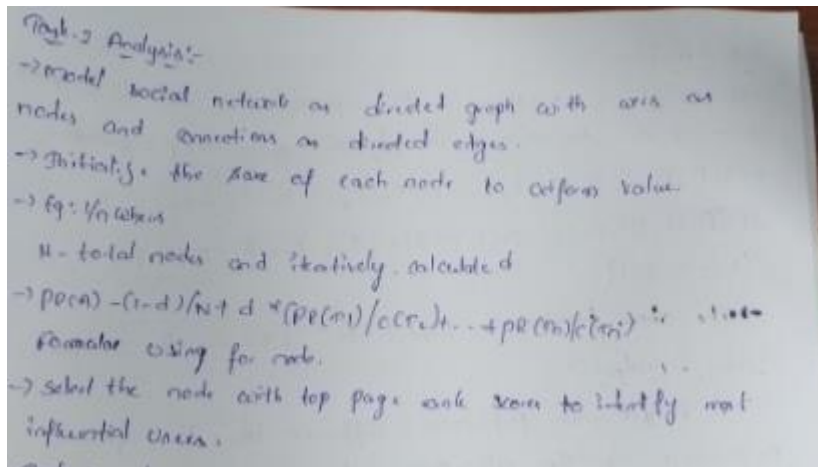 Task-2 Analysis:-
-> model social network as directed graph with as
nodes and connections as directed edges.
-> Initialize the of each node to value
-> Eg: 1/n where
N - total nodes and iteratively calculated
-> PR(A) -(1-d)/N+ d *(PR(T1)/C(T1)+...+PR(Tn)/C(Tn)) is
using for node.
-> select the node with top page rank to identify most
influential users.